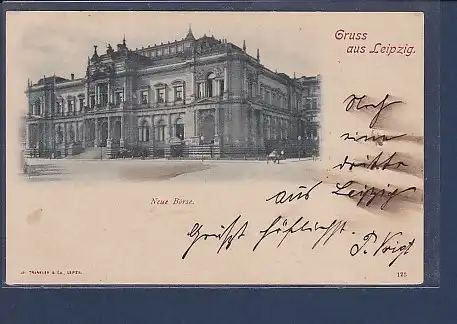 Gruss
aus Leipzig.
Noch
eine
dritte
aus Leipzig
Grüßt höflichst.
P. Voigt
Neue Börse.
TRENKLER & Co., LEIPZIG.
125